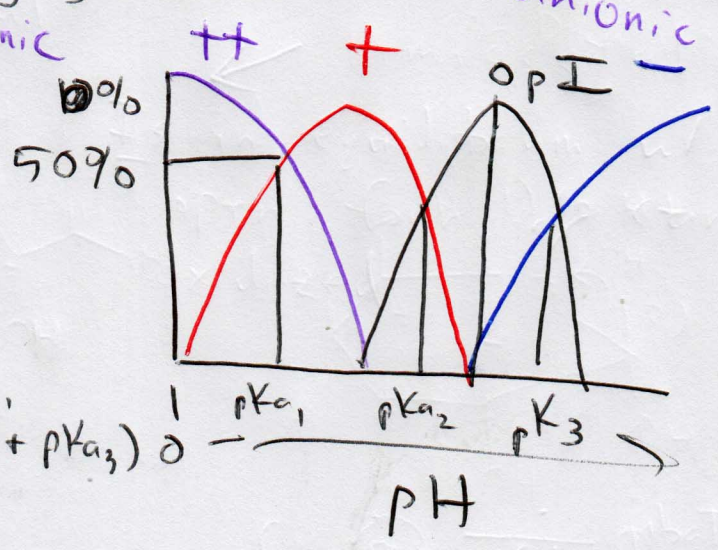 nionic
nic
++ + 0 pI −
0%
50%
pKa1 pKa2 pK3
+ pKa3) 0 → 
pH